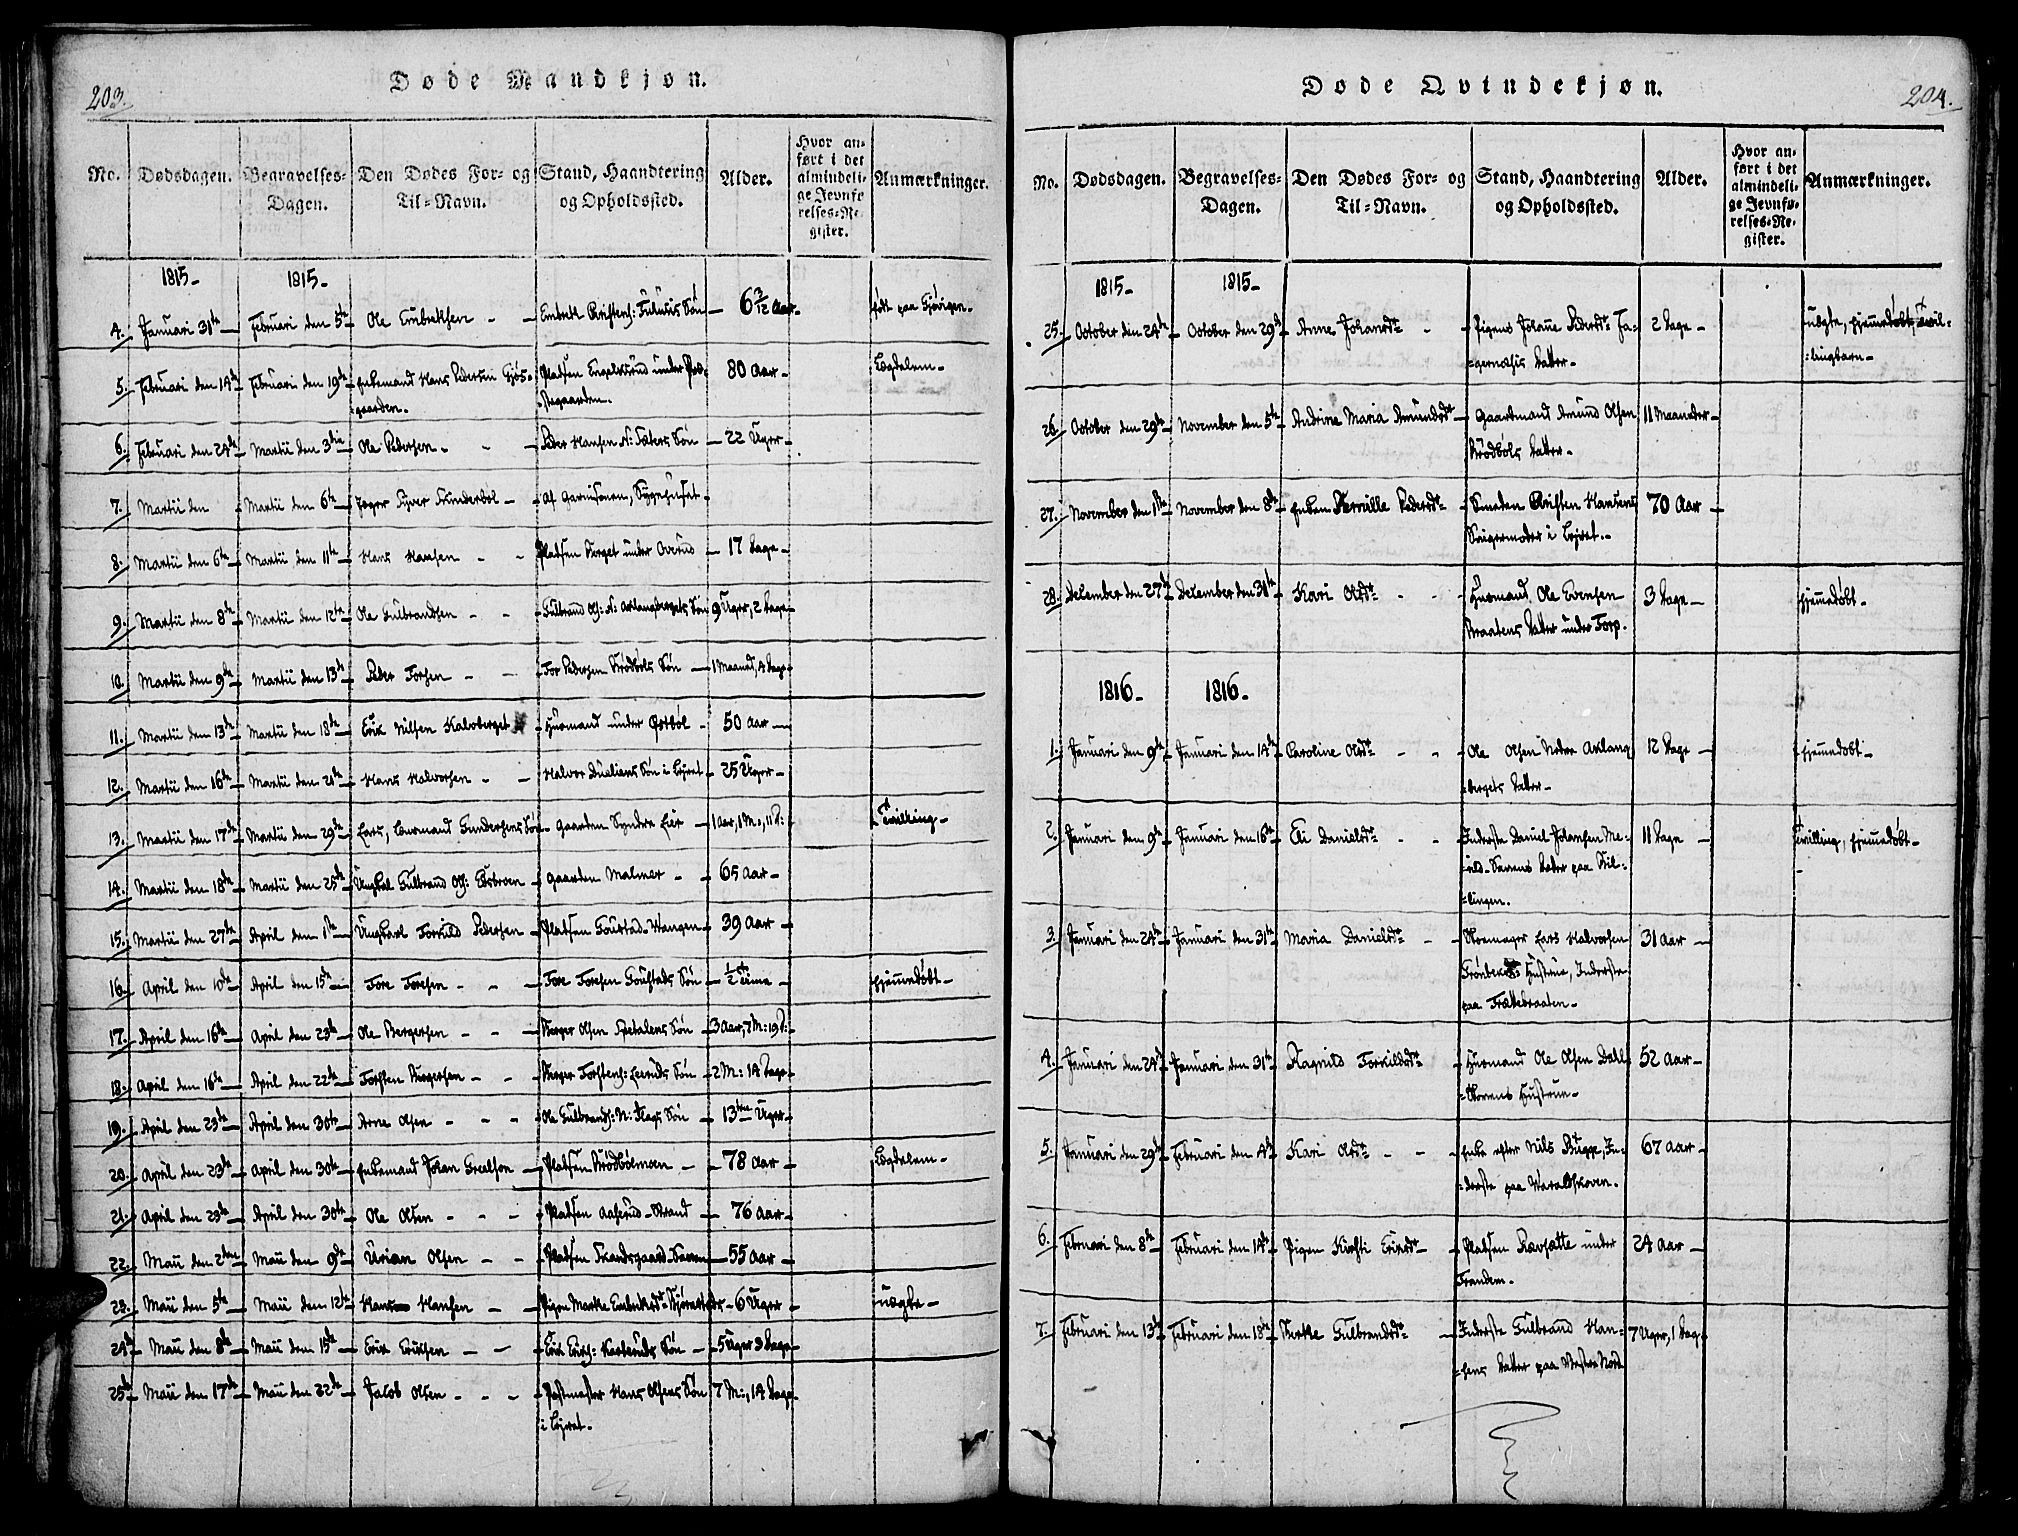 203.
Døde Mandkjøn.
No.
Dødsdagen.
Begravelses-
Dagen.
Den Dødes For- og
Til-Navn.
Stand, Haandtering
og Opholdssted.
Alder.
Hvor an-
ført i det
almindeli-
ge Jevnfø-
relses-Re-
gister.
Anmærkninger.
1815- 1815-
4. Januari 31te Februari den 5te Ole Embretsen Embret Søn 6 3/12 Aar født paa
5. Februari den 14de Februari den 19de Enkemand Hans Pedersen Platsen under 80 Aar Lægdslem
gaarden.
6. Februari den 24de Martii den 3die Ole Pedersen Peder Hansen N: Søn 22 Uger
7. Martii den Martii den 6te Jæger af Garnisonen, Sygehuset
8. Martii den 6te Martii den 11te Hans Hansen Platsen under Overud 17 Dage
9. Martii den 8de Martii den 12te Ole Gulbrandsen Gulbrand Ols: N: Søn 9 Uger, 2 Dage
10. Martii den 9de Martii den 13de Peder Torsen Tor Pedersen Brødbøls Søn 1 Maaned, 4 Dage
11. Martii den 13de Martii den 18de Erik Nilsen Kalvberget Huusmand under Østbøl 50 Aar
12. Martii den 16de Martii den 21de Hans Halvorsen Halvor Søn i Leyret 25 Uger
13. Martii den 17de Martii den 29de Lars, Gundersens Søn Gaarden Søndre Lier 1 Aar, 1 M:, 11 D: Tvilling
14. Martii den 18de Martii den 25de Ungkarl Gulbrand Ols: Gaarden Malmer 65 Aar
15. Martii den 27de April den 1te Ungkarl Torkild Pedersen Platsen Goustad-Vangen 39 Aar
16. April den 10de April den 15de Tore Toresen Tore Toresen Goustads Søn 1/2 Time hjemmedøbt
17. April den 16de April den 23de Ole Bergersen Berger Olsen Spetalens Søn 3 Aar, 7 M: 19 D:
18. April den 16de April den 22de Torsten Bergersen Berger Torstens: Søn 2 M: 14 Dage
19. April den 23de April den 30te Arne Olsen Ole Gulbrands: N: Søn 13ten Uger
20. April den 23de April den 30te Enkemand Johan Platsen Brødbølmoen 78 Aar Lægdslem
21. April den 23de April den 30te Ole Olsen Platsen Aaserud-Strand 76 Aar
22. Maii den 2den Maii den 9de Urian Olsen Platsen Skandsgaard-Sanden 55 Aar
23. Maii den 5te Maii den 12te Hans Hansen Pigen Marte Embretsdr: 6 Uger uægte
24de Maii den 8de Maii den 15de Erik Eriksen Erik Eriks: Søn 5 Uger 3 Dage
25de Maii den 17de Maii den 22de Jacob Olsen Postmester Hans Olsens Søn 7 M:, 14 Dage
i Leyret.
204.
Døde Qvindekjøn.
No.
Dødsdagen.
Begravelses-
Dagen.
Den Dødes For- og
Til-Navn.
Stand, Haandtering
og Opholdssted.
Alder.
Hvor an-
ført i det
almindeli-
ge Jevnfø-
relses-Re-
gister.
Anmærkninger.
1815- 1815-
25. October den 24de October den 29de Anne Johansdr Pigens Johanne Pedersdr Ja- 2 Dage uægte, hjemmedøbt, Tvil-
Datter lingbarn
26. October den 29de November den 5te Andrine Maria Amundsdr Gaardmand Amund Olsen 11 Maaneder
Brødbøls Datter
27. November den 1te November den 8de Enken Pernille Pedersdr Smeden Christen Hansens 70 Aar
Svigermoder i Leyret.
28. December den 27de December den 31te Kari Olsdr Huusmand Ole Evensen 3 Dage hjemmedøbt
Braatens Datter under Torp.
1816- 1816-
1. Januari den 9de Januari den 14de Caroline Olsdr Ole Olsen Nedre Aklang 12 Dage hjemmedøbt
bergets Datter
2. Januari den 9de Januari den 16de Eli Danielsdr Inderste Daniel Johansen 11 Dage Tvilling, hjemmedøbt
Datter paa
lingen.
3. Januari den 24de Januari den 31te Maria Danielsdr Skomager Lars Halvorsen 31 Aar
Hustrue, Inderste
paa Trættebraaten
4. Januari den 24de Januari den 31te Ragnild Torkildsdr Huusmand Ole Olsen Dahl 52 Aar
Hustrue
5. Januari den 29de Februari den 4de Kari Olsdr Enke efter Nils Bugge, In- 67 Aar
derste paa Varaldskoven.
6. Februari den 8de Februari den 14de Pigen Kirsti Eriksdr Platsen Rævsætte under 24 Aar
Trandem.
7. Februari den 13de Februari den 18de Berte Gulbrandsdr Inderste Gulbrand Han- 7 Uger, 1 Dag
sens Datter paa Vestre Nord